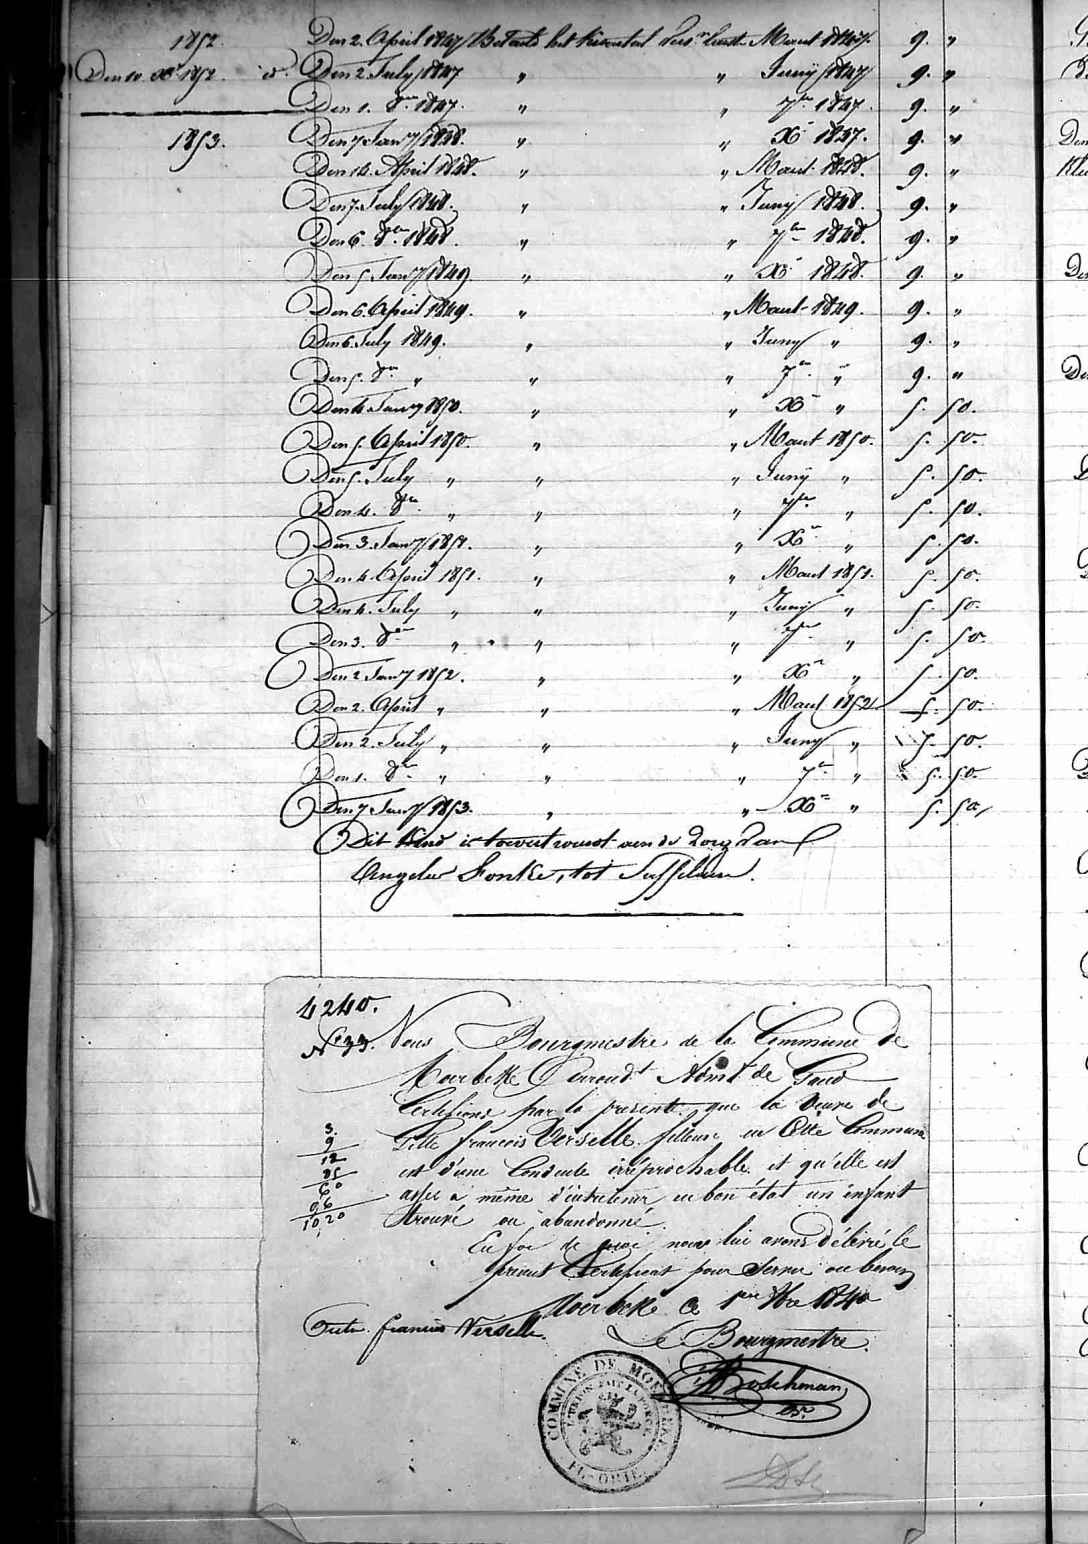 1852.
Den 10. Xr 1852. d°.
1853.
Den 2. April 1847 Betaelt het kwartael Maert 1847. 9. "
Den 2. July 1847 " " Juny 1847 9. "
Den 1. 8bre 1847. " " 7bre 1847. 9. "
Den 7 Janry 1848. " " Xr 1847. 9. "
Den 14. April 1848. " " Maert 1848. 9. "
Den 7. July 1848. " " Juny 1848. 9. "
Den 6. 8bre 1848. " " 7bre 1848. 9. "
Den 5. Janry 1849 " " Xr 1848. 9. "
Den 6. April 1849. " " Maert 1849. 9. "
Den 6. July 1849. " " Juny " 9. "
Den 5. 8bre " " " 7bre " 9. "
Den 4. Janry 1850. " " Xr " 5. 50.
Den 5. April 1850. " " Maert 1850. 5. 50.
Den 5. July " " " Juny " 5. 50.
Den 4. 8bre " " " 7bre " 5. 50.
Den 3. Janry 1851. " " Xr " 5. 50.
Den 4. April 1851. " " Maert 1851. 5. 50.
Den 4. July " " " Juny " 5. 50.
Den 3. 8bre " " " 7bre " 5. 50.
Den 2 Janry 1852. " " Xr " 5. 50.
Den 2. April " " " Maert 1852 5. 50.
Den 2. July " " " Juny " 5. 50.
Den 1. 8bre " " " 7bre " 5. 50.
Den 7 Janry 1853. " " Xr " 5. 50.
Dit kind is toevertrouwt aen de zorg van
Angela Fonke, tot Suffelaere.
4240.
N° 33. Nous Bourgmestre de la Commune de
Moerbeke Arrond.t Admt de Gand
Certifions par la présente que la Veuve de
Gille francois Verselle fileuse en Cette Commune
est d'une Conduite irréprochable et qu'elle est
assez a même d'entretenir en bon état un enfant
trouvé ou abandonné.
En foi de quoi nous lui avons délivré le
présent Certificat pour Servir au besoin
Moerbeke Ce 1er Xbre 1840
3.
9
12
85
60
06
10 20
francies Verselle.
Le Bourgmestre.
COMMUNE DE MOERBEKE
L'UNION FAIT LA FORCE
FL-ORIE.